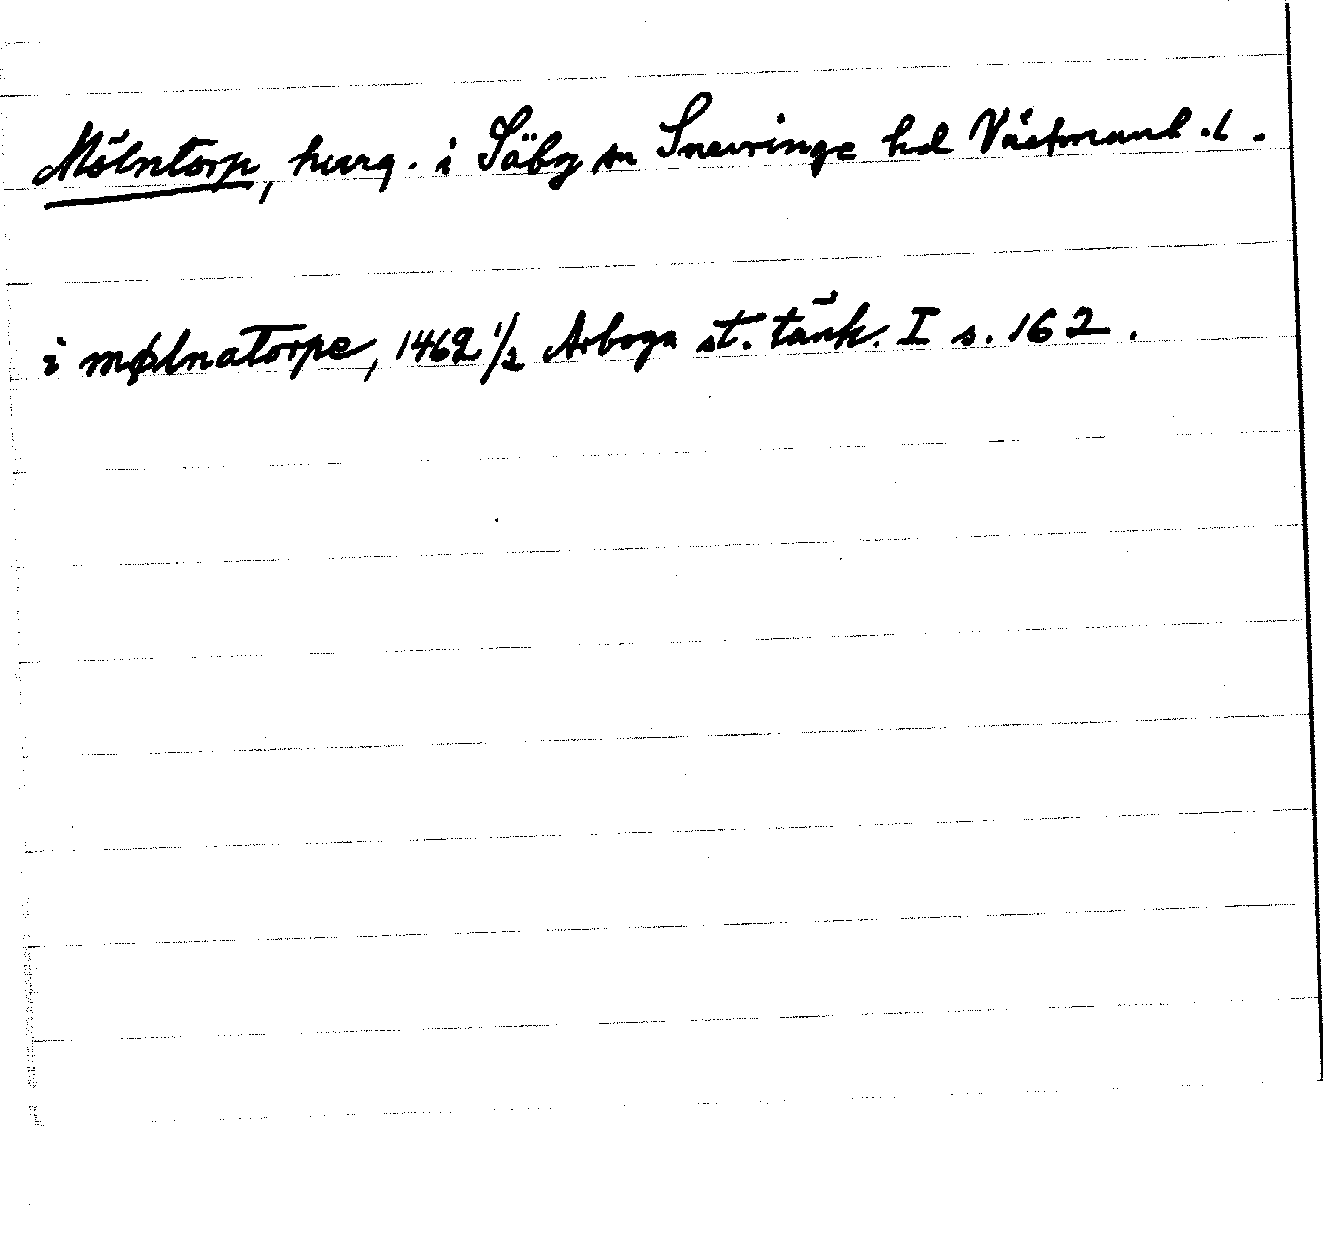 Mölntorp, herrg. i Säby sn Snevringe hd Västmanl. l.
i mølnatorpe, 1462 1/2 Arboga st. tänk. I s. 162.